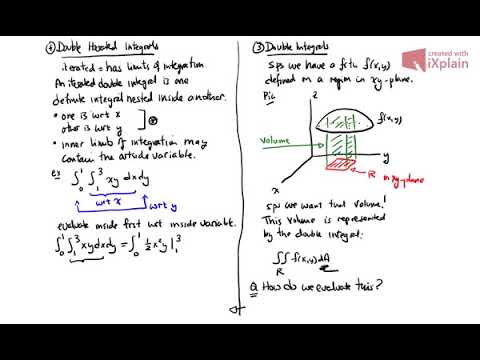 ① Double Iterated Integrals
iterated = has limits of integration.
An iterated double integral is one
definite integral nested inside another.
• one is wrt x
other is wrt y
• inner limits of integration may
contain the outside variable.
ex ∫₀¹ ∫₁³ xy dx dy
wrt x
wrt y
evaluate inside first wrt inside variable.
∫₀¹ ∫₁³ xy dx dy = ∫₀¹ ½x²y |₁³
③ Double Integrals
Sps we have a fctn f(x,y)
defined on a region in xy-plane.
Pic
z
f(x,y)
Volume
y
R in xy-plane
x
Sps we want that volume!
This volume is represented
by the double integral:
∬ f(x,y) dA
R
Q How do we evaluate this?
created with
iXplain